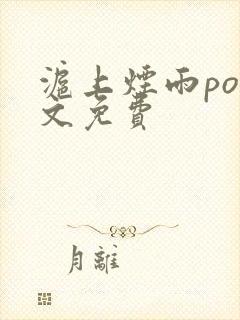 滬上煙雨po
文免費
月離